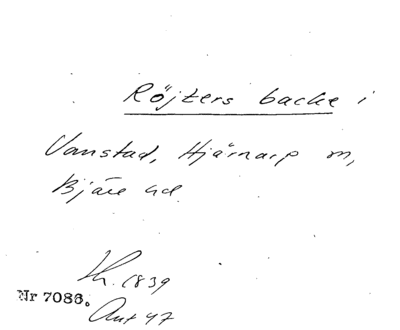 Röjters backe i
Vanstad, Hjärnarp sn,
Bjäre hd.
Th. 1839
Nr 7086.
Ant 47